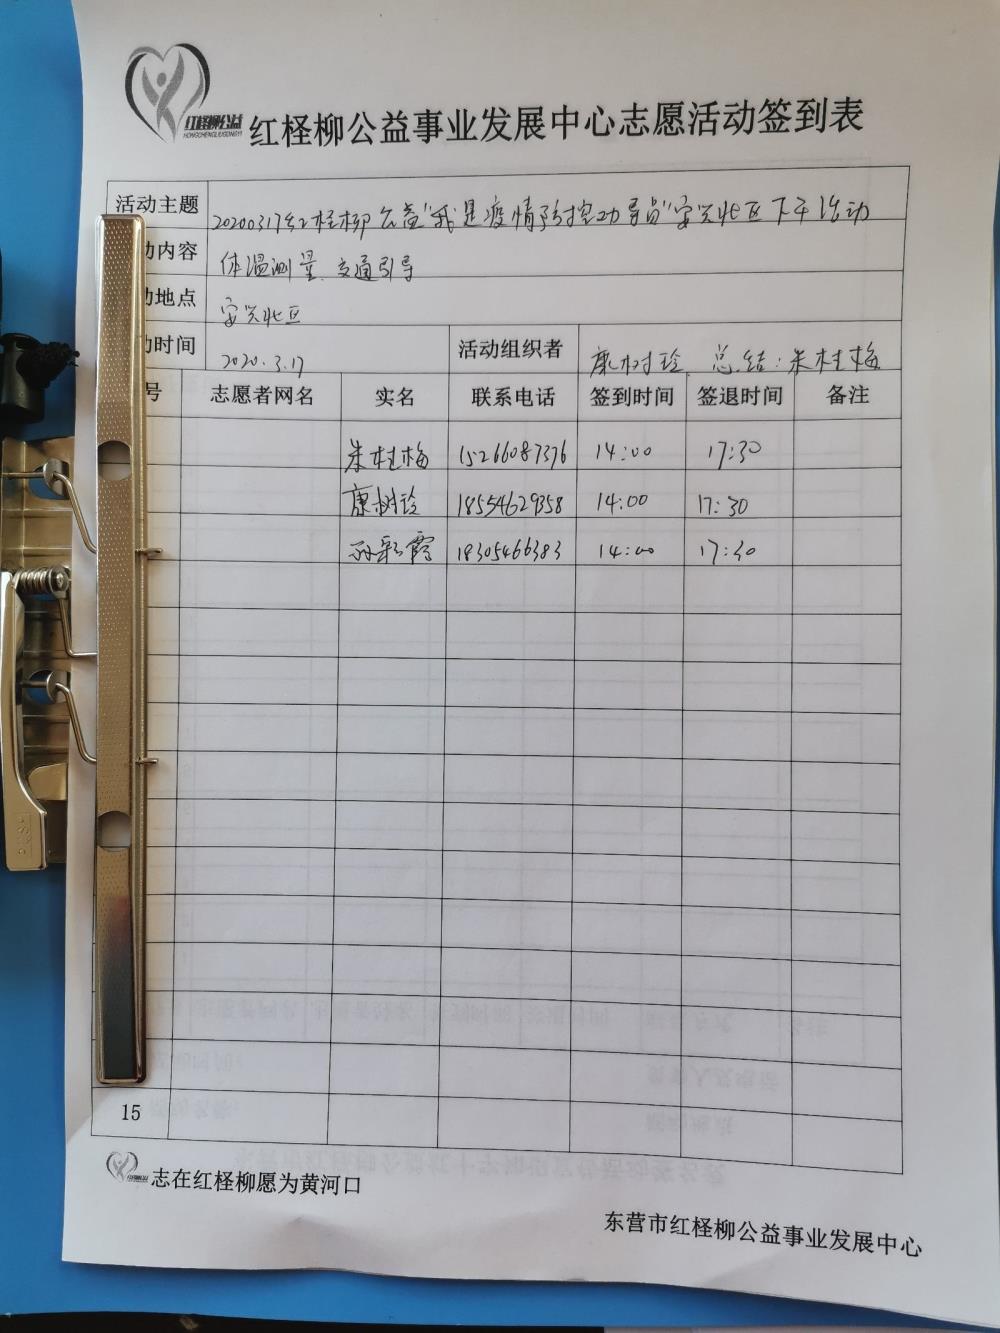 红柽柳公益
HONGCHENGLIUGONGYI
红柽柳公益事业发展中心志愿活动签到表
活动主题 20200317红柽柳公益"我是疫情防控劝导员"安兴北区下午活动
动内容 体温测量、交通引导
动地点 安兴北区
动时间 2020.3.17 活动组织者 康树玲 总结:朱桂梅
号 志愿者网名 实名 联系电话 签到时间 签退时间 备注
朱桂梅 15266087376 14:00 17:30
康树玲 18554629358 14:00 17:30
孙彩霞 18305466383 14:00 17:30
15
志在红柽柳愿为黄河口
东营市红柽柳公益事业发展中心